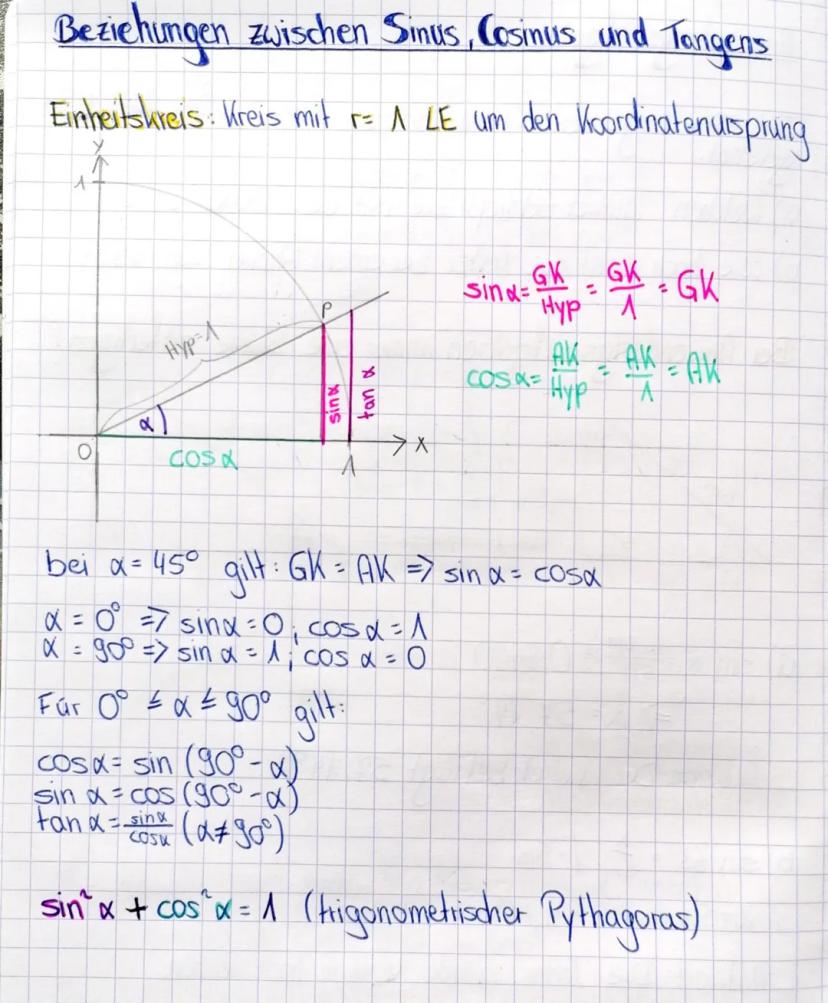 Beziehungen zwischen Sinus, Cosinus und Tangens
Einheitskreis: Kreis mit r = 1 LE um den Koordinatenursprung
y
1
P
Hyp=1
α
sinα
tan α
0
cos α
1
x
sinα = GK/Hyp = GK/1 = GK
cos α = AK/Hyp = AK/1 = AK
bei α = 45° gilt: GK = AK => sin α = cosα
α = 0° => sinα = 0; cos α = 1
α = 90° => sin α = 1; cos α = 0
Für 0° ≤ α ≤ 90° gilt:
cosα = sin (90° - α)
sin α = cos (90° - α)
tan α = sinα/cosα (α ≠ 90°)
sin² α + cos² α = 1 (trigonometrischer Pythagoras)